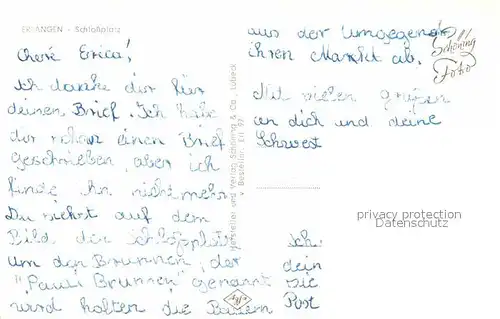 ERLANGEN - Schloßplatz
Cheré Erica!
Ich danke dir für
deinen Brief. Ich habe
dir schon einen Brief
geschrieben, aber ich
finde ihn nicht mehr
Du siehst auf dem
Bild den Schloßplatz
um den Brunnen, der
"Pauli Brunnen" genannt
wird halten die Bauern
aus der Umgegend
ihren Markt ab.
Mit vielen grüßen
an dich und deine
Schwest
Ich
dein
sie
Post
Hersteller und Verlag Schöning & Co., Lübeck
Bestellnr. Erl 97
Schöning
Foto
Agfa
privacy protection
Datenschutz